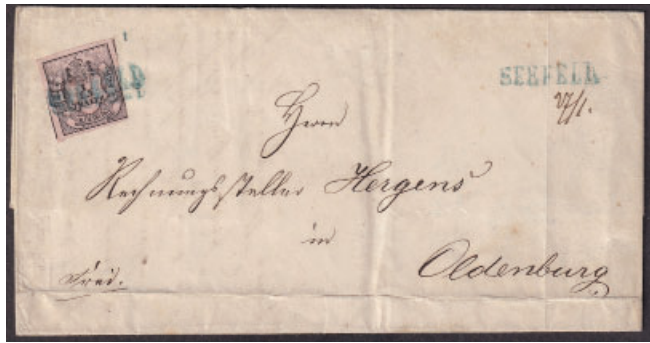 SEEFELD
27/1.
Herrn
Rechnungssteller Hergens
in
Oldenburg
frei.